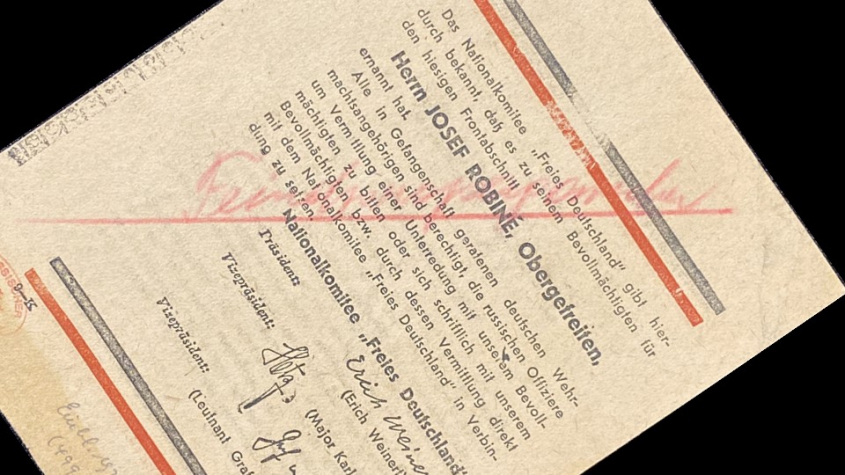 Das Nationalkomitee „Freies Deutschland" gibt hier-
durch bekannt, daß es zu seinem Bevollmächtigten für
den hiesigen Frontabschnitt
Herrn JOSEF ROBINÉ, Obergefreiten,
ernannt hat.
Alle in Gefangenschaft geratenen deutschen Wehr-
machtsangehörigen sind berechtigt, die russischen Offiziere
um Vermittlung einer Unterredung mit unserem Bevoll-
mächtigten zu bitten oder sich schriftlich mit unserem
Bevollmächtigten bzw. durch dessen Vermittlung direkt
mit dem Nationalkomitee „Freies Deutschland" in Verbin-
dung zu setzen.
Nationalkomitee „Freies Deutschland"
Präsident: Erich Weiner
(Erich Weinert
Vizepräsident:
(Major Karl
Vizepräsident:
(Leutnant Graf